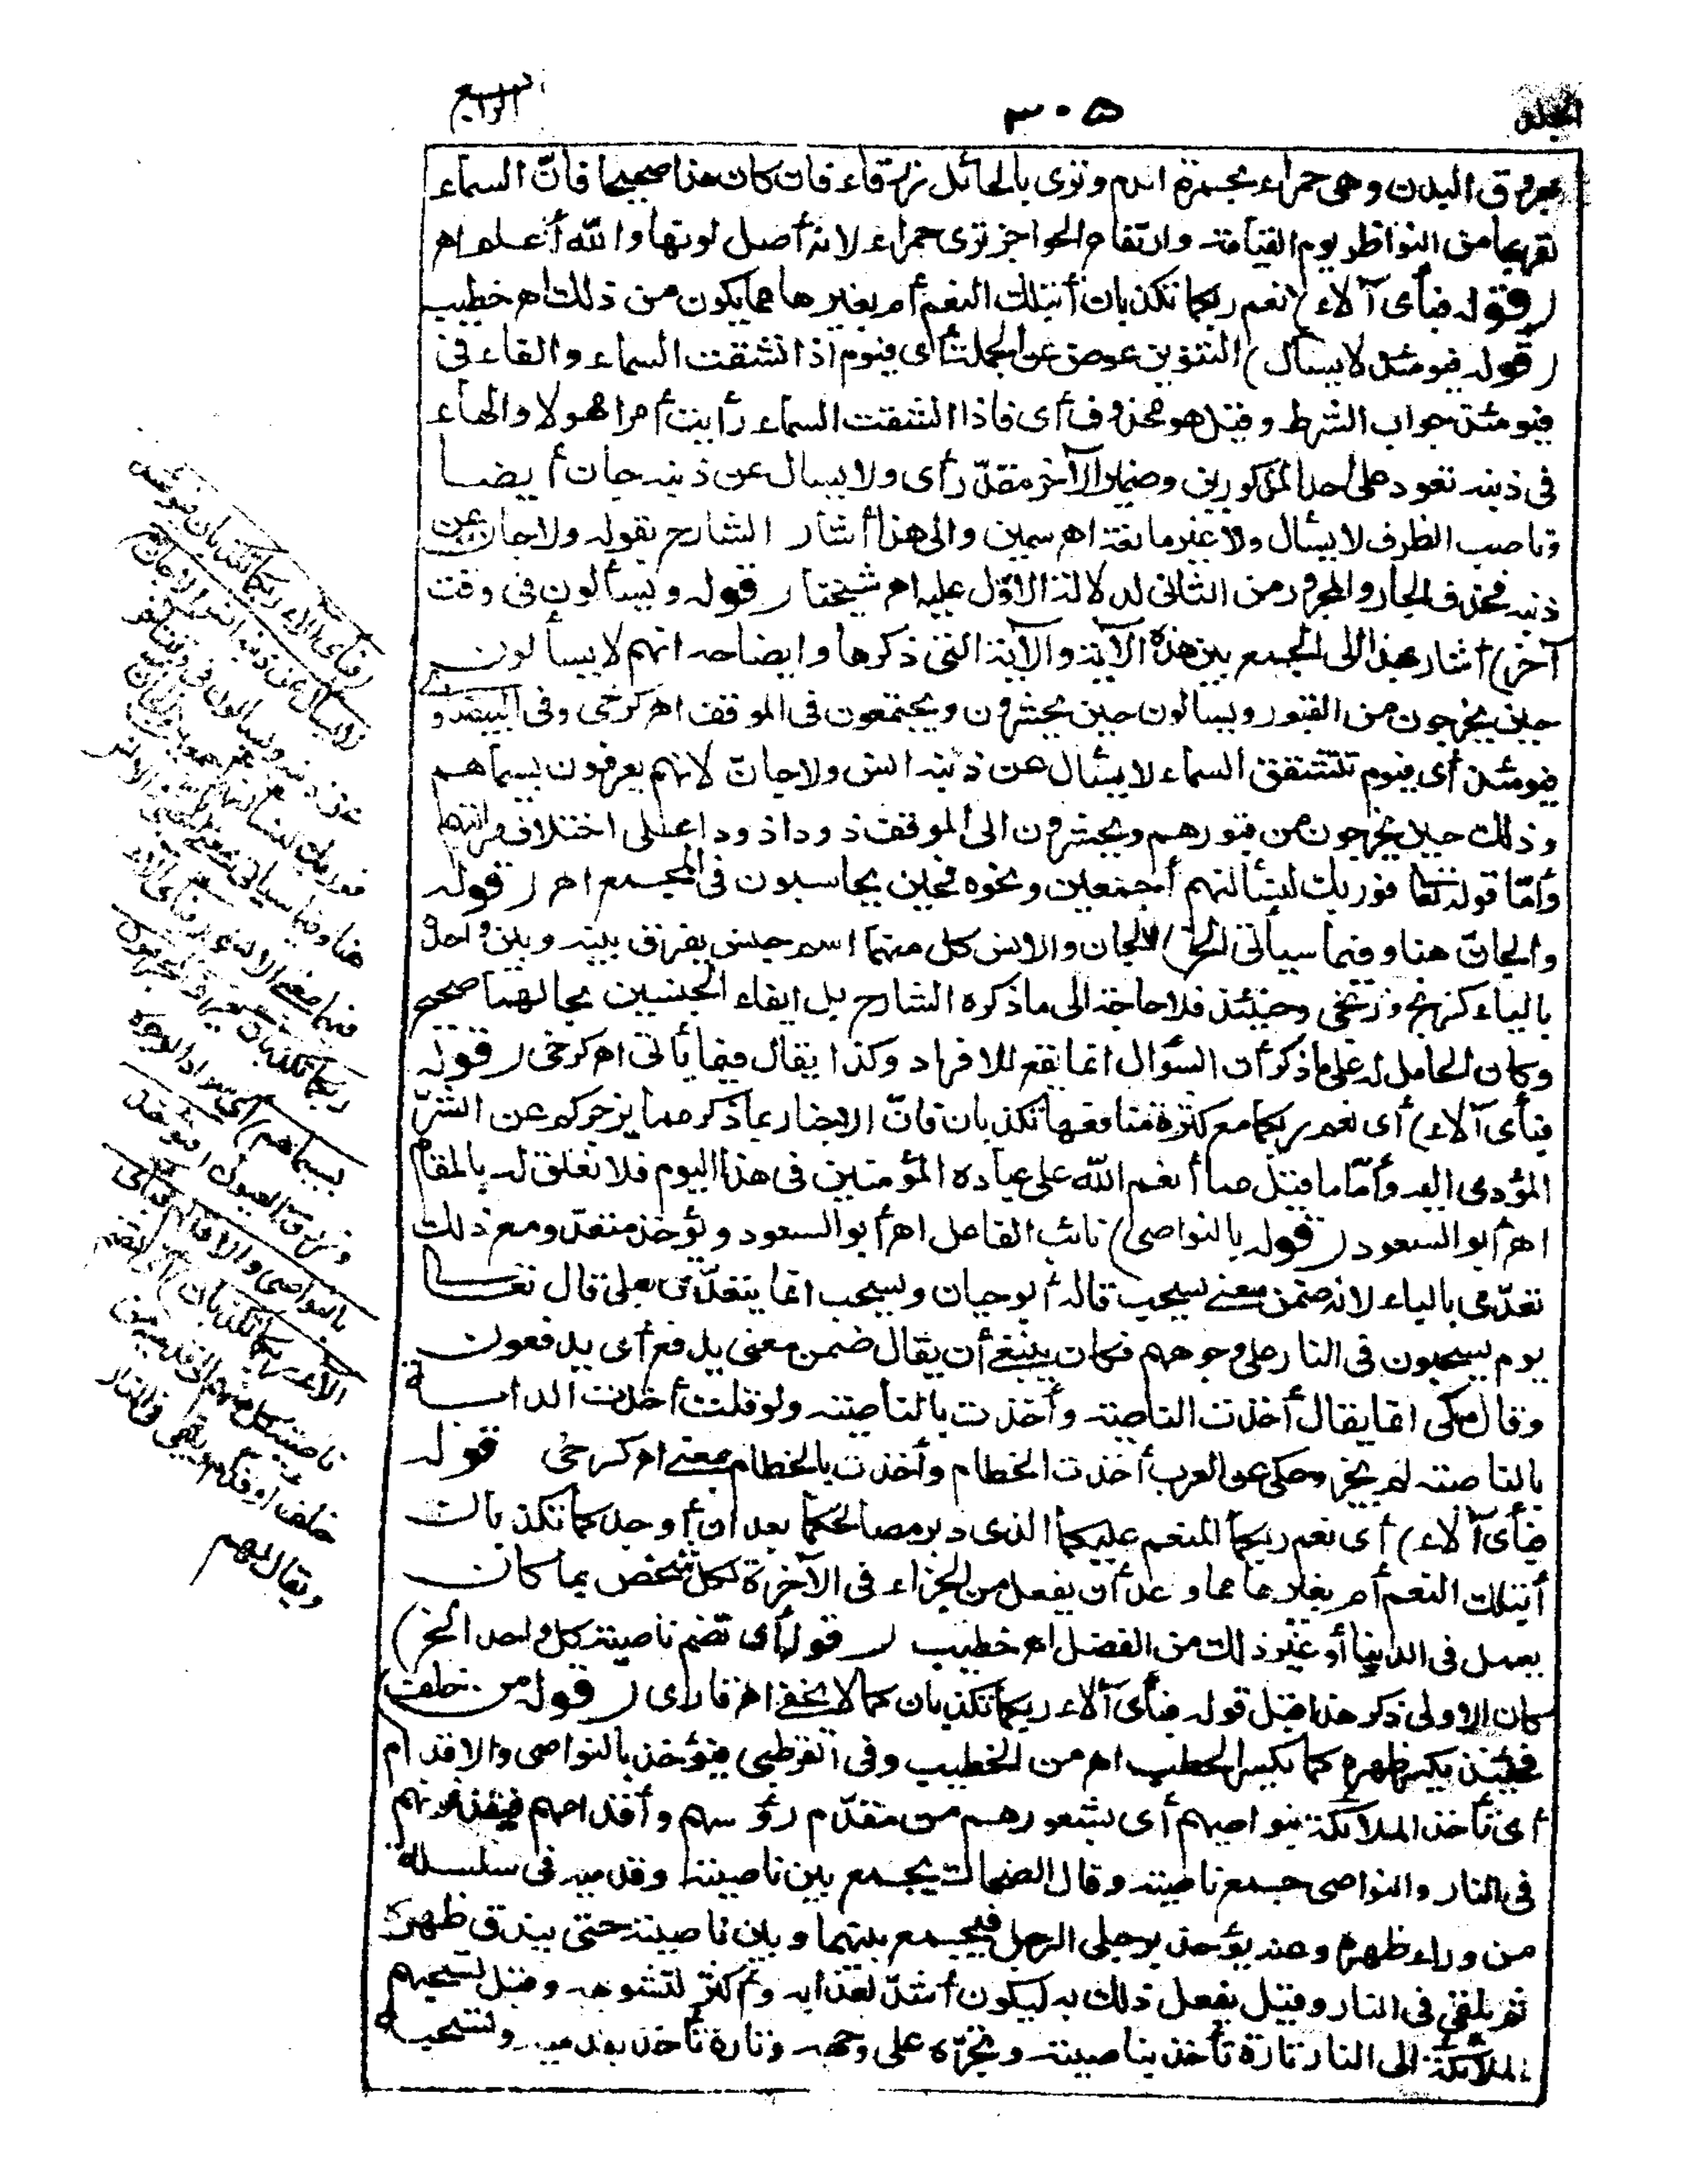 المجلد
٣٠٥
الرابع
عروق البدن وهى حمراء بحمرة الدم وترى بالحائل زرقاء فان كان هذا صحيحا فانّ السماء
لقربها من النواظر يوم القيامة وارتفاع الحواجز ترى حمراء لانه أصل لونها والله أعلم اه
(قوله فبأى آلاء) نعم ربكما تكذبان أبتلك النعم أم بغيرها مما يكون من ذلك اه خطيب
(قوله فيومئذ لا يسأل) التنوين عوض عن الجملة أى فيوم اذا انشقت السماء والفاء فى
فيومئذ جواب الشرط وقيل هو محذوف أى فاذا انشقت السماء رأيت أمرا مهولا والهاء
فى ذنبه تعود على أحد المذكورين وضمير الآخر مقدّر أى ولا يسأل عن ذنبه جان أيضا
وناصب الظرف لا يسأل ولا غير مانعة اه سمين والى هذا أشار الشارح بقوله ولا جان عن
ذنبه فحذف الجار والمجرور من الثانى لدلالة الاوّل عليه اه شيخنا (قوله ويسألون فى وقت
آخر) أشار بهذا الى الجمع بين هذه الآية والآية التى ذكرها وايضاحه انهم لا يسألون
حين يخرجون من القبور ويسألون حين يحشرون ويجتمعون فى الموقف اه كرخى وفى البيضاوى
فيومئذ أى فيوم تنشقق السماء لا يسئال عن ذنبه انس ولا جانّ لانهم يعرفون بسيماهم
وذلك حين يخرجون من قبورهم ويحشرون الى الموقف ذودا ذودا على اختلاف مراتبهم
وأمّا قوله تعالى فوربك لنسألنهم أجمعين ونحوه فحين يحاسبون فى المجمع اه (قوله
والجانّ هنا وفيما سيأتى الخ) الجان والانس كل منهما اسم جنس يفرق بينه وبين واحده
بالياء كزنج وزنجى وحينئذ فلا حاجة الى ما ذكره الشارح بل ابقاء الجنسين بحالهما صحيح
وكان الحامل له على ما ذكر أن السؤال انما يقع للافراد وكذا يقال فيما يأتى اه كرخى (قوله
فبأى آلاء) أى نعم ربكما مع كثرة منافعها تكذبان فانّ الاخبار بما ذكر مما يزجركم عن الشرّ
المؤدى اليه وأمّا ما قيل مما أنعم الله على عباده المؤمنين فى هذا اليوم فلا تعلق له بالمقام
اه أبو السعود (قوله بالنواصى) نائب الفاعل اه أبو السعود وتؤخذ متعدّ ومع ذلك
تعدّى بالباء لانه ضمن معنى يسحب قاله أبو حيان ويسحب انما يتعدّى بعلى قال تعالى
يوم يسحبون فى النار على وجوههم فكان ينبغى أن يقال ضمن معنى يدفع أى يدفعون
وقال مكى انما يقال أخذت الناصية وأخذت بالناصية ولو قلت أخذت الدابة
بالناصية لم يجز وحكى عن العرب أخذت الخطام وأخذت بالخطام بمعنى اه كرخى قوله
فبأى آلاء) أى نعم ربكما المنعم عليكما الذى دبر مصالحكما بعد أن أوجدكما تكذبان
أبتلك النعم أم بغيرها مما وعد أن يفعل من الجزاء فى الآخرة لكل شخص بما كان
يعمل فى الدنيا أو غير ذلك من الفضل اه خطيب (قوله أى تضم ناصية كل واحد الخ)
كان الاولى ذكر هذا قبل قوله فبأى آلاء ربكما تكذبان كما لا يخفى اه قارى (قوله من خلف)
فحينئذ يكسر ظهره كما يكسر الحطب اه من الخطيب وفى القرطبى فيؤخذ بالنواصى والاقدام
أى تأخذ الملائكة بنواصيهم أى بشعورهم من مقدّم رؤسهم وأقدامهم فيقذفونهم
فى النار والنواصى جمع ناصية وقال الضحاك يجمع بين ناصيته وقدميه فى سلسلة
من وراء ظهره وعنه يؤخذ برجلى الرجل فيجمع بينهما وبين ناصيته حتى يندق ظهره
ثم يلقى فى النار وقيل يفعل ذلك به ليكون أشدّ لعذابه وأكثر لتشويهه وقيل تسحبهم
الملائكة الى النار تارة تأخذ بناصيته وتجرّه على وجهه وتارة تأخذ بقدميه وتسحبه
(فبأى آلاء ربكما تكذبان فيومئذ
لا يسأل عن ذنبه انس ولا جانّ)
عن ذنبه ويسألون فى وقت آخر
فوربك لنسألنهم أجمعين والجانّ
هنا وفيما سيأتى بمعنى الجنى والانس
فيهما بمعنى الانسى (فبأى آلاء
ربكما تكذبان يعرف المجرمون
بسيماهم) أى سواد الوجوه
وزرقة العيون (فيؤخذ
بالنواصى والاقدام فبأى
آلاء ربكما تكذبان) أى تضم
ناصية كل منهم الى قدميه من
خلف أو قدّام ويلقى فى النار
ويقال لهم